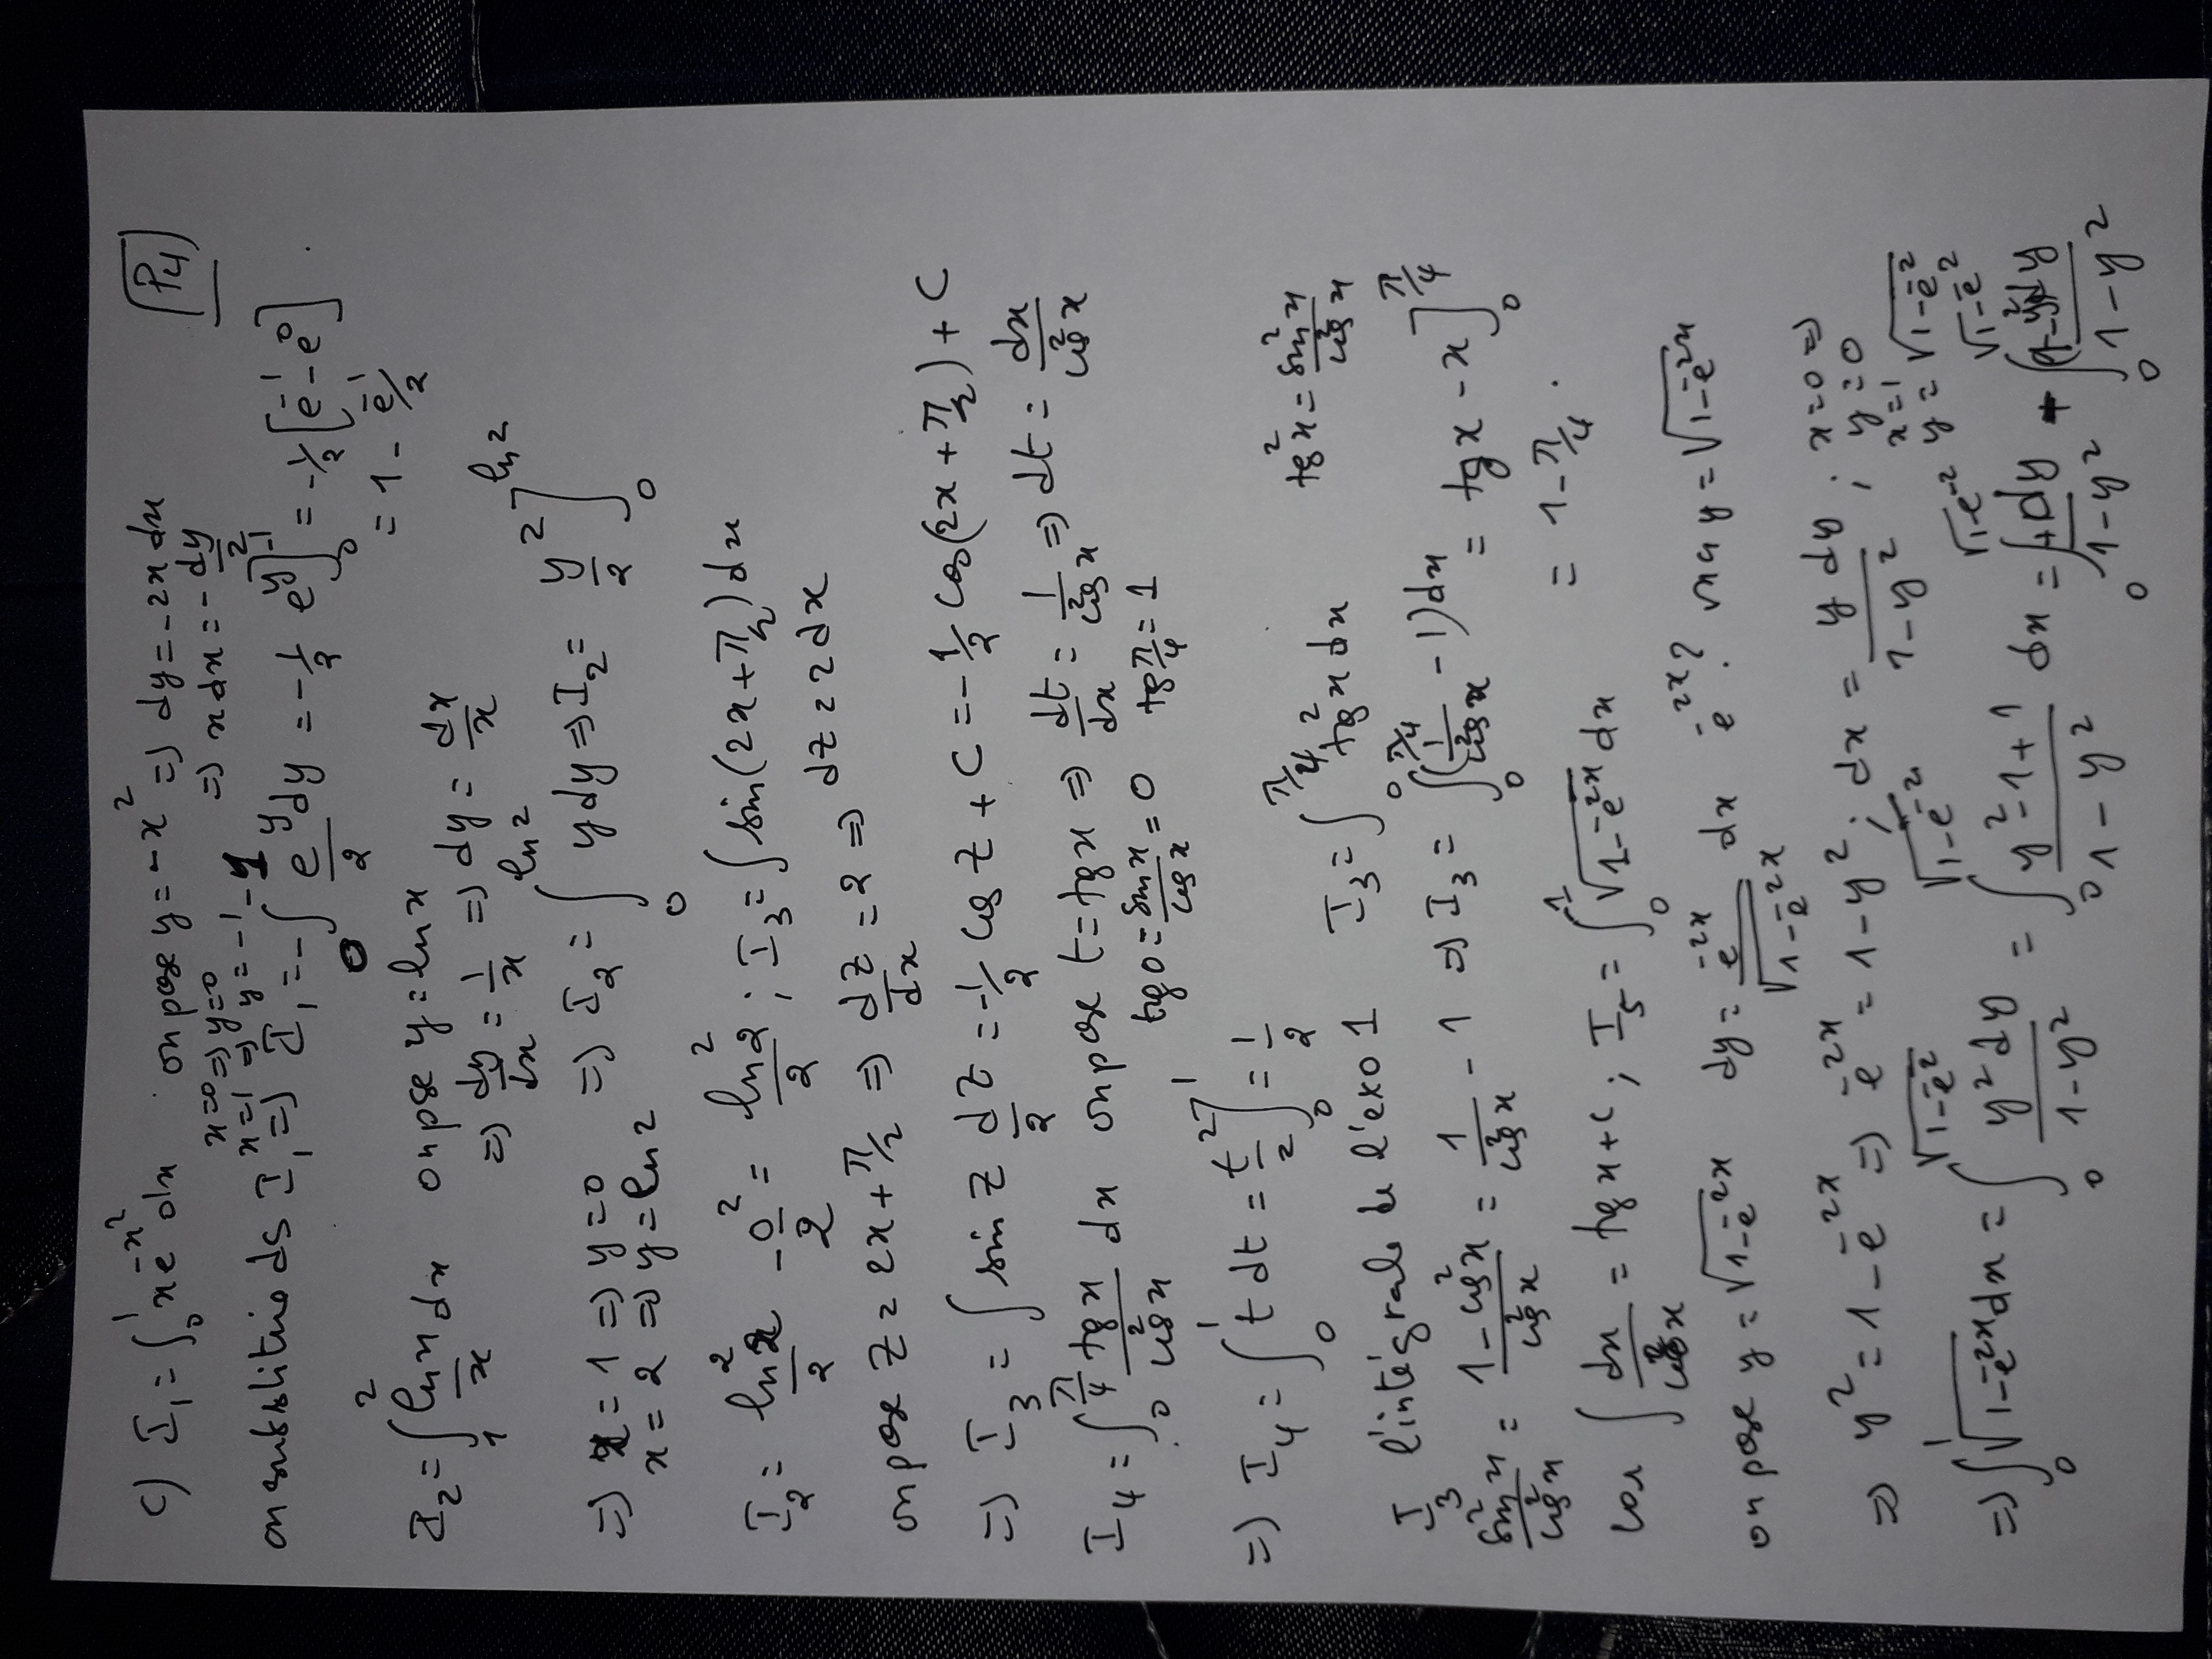 P4
c) I₁ = ∫₀¹ x e^(-x²) dx on pose y = -x² => dy = -2x dx
x=0 => y=0 => x dx = -dy/2
x=1 => y = -1
on substitue ds I₁ => I₁ = -∫₀^(-1) e^y/2 dy = -1/2 e^y]₀^(-1) = -1/2 [e^(-1) - e⁰]
= 1 - e^(-1)/2
I₂ = ∫₁² ln x/x dx on pose y = ln x
=> dy/dx = 1/x => dy = dx/x
=> x = 1 => y = 0 => I₂ = ∫₀^(ln 2) y dy => I₂ = y²/2]₀^(ln 2)
x = 2 => y = ln 2
I₂ = ln²2/2 - 0²/2 = ln²2/2 ; I₃ = ∫ sin(2x + π/2) dx
on pose z = 2x + π/2 => dz/dx = 2 => dz = 2dx
=> I₃ = ∫ sin z dz/2 = -1/2 cos z + C = -1/2 cos(2x + π/2) + C
I₄ = ∫₀^(π/4) tg x/cos²x dx on pose t = tg x => dt/dx = 1/cos²x => dt = dx/cos²x
tg 0 = sin x/cos x = 0 tg π/4 = 1
=> I₄ = ∫₀¹ t dt = t²/2]₀¹ = 1/2
I₃ l'intégrale de l'exo 1 I₃ = ∫₀^(π/4) tg²x dx tg²x = sin²x/cos²x
sin²x/cos²x = (1 - cos²x)/cos²x = 1/cos²x - 1 => I₃ = ∫₀^(π/4) (1/cos²x - 1) dx = tg x - x]₀^(π/4)
= 1 - π/4 .
car ∫ dx/cos²x = tg x + c ; I₅ = ∫₀¹ √(1 - e^(-2x)) dx
on pose y = √(1 - e^(-2x)) dy = e^(-2x)/√(1 - e^(-2x)) dx e^(-2x) ? y = √(1 - e^(-2x))
=> y² = 1 - e^(-2x) => e^(-2x) = 1 - y² ; dx = y dy/(1 - y²) ; x = 0 => y = 0
x = 1 y = √(1 - e^(-2))
=> ∫₀¹ √(1 - e^(-2x)) dx = ∫₀^√(1-e^(-2)) y² dy/(1 - y²) = ∫₀^√(1-e^(-2)) (y² - 1 + 1)/(1 - y²) dx = ∫₀^√(1-e^(-2)) +dy/(1 - y²) + ∫₀^√(1-e^(-2)) (1 - y²)dy/(1 - y²)